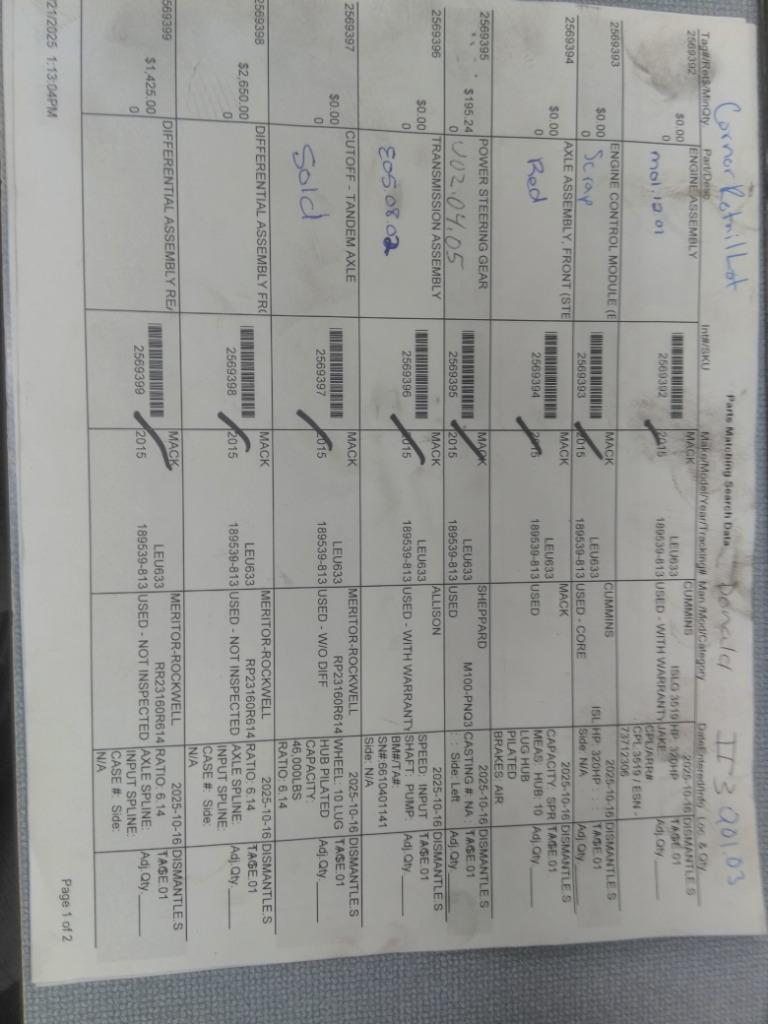 Parts Matching Search Data
Donald
II 3 Q01.03
Tag#/Ret$/MinQty Part/Desc Int#/SKU Make/Model/Year/Tracking# Man./Mod/Category DateEntered/Info Loc. & Qty
2569392 ENGINE ASSEMBLY MACK CUMMINS 2025-10-16 DISMANTLE.S
$0.00 LEU633 ISLG 3619 HP: 320HP TAGE.01
0 2569392 2015 189539-813 USED - WITH WARRANTY JAKE: Adj. Qty
CPL 3619 / ESN -
73712306
2569393 ENGINE CONTROL MODULE (E MACK CUMMINS 2025-10-16 DISMANTLE.S
$0.00 Scrap LEU633 ISL HP: 320HP : : : TAGE.01
0 2569393 2015 189539-813 USED - CORE Side: N/A Adj. Qty
2569394 AXLE ASSEMBLY, FRONT (STE MACK MACK 2025-10-16 DISMANTLE.S
$0.00 Red LEU633 CAPACITY: SPR TAGE.01
0 2569394 2015 189539-813 USED MEAS: HUB: 10 Adj. Qty
LUG HUB
PILATED
BRAKES: AIR
2569395 POWER STEERING GEAR MACK SHEPPARD 2025-10-16 DISMANTLE.S
$195.24 U02.04.05 LEU633 M100-PNQ3 CASTING #: NA : TAGE.01
0 2569395 2015 189539-813 USED : : Side: Left Adj. Qty
2569396 TRANSMISSION ASSEMBLY MACK ALLISON 2025-10-16 DISMANTLE.S
$0.00 E05.08.02 LEU633 SPEED: INPUT TAGE.01
0 2569396 2015 189539-813 USED - WITH WARRANTY SHAFT: PUMP: Adj. Qty
BM#/TA#:
SN#:6610401141
Side: N/A
2569397 CUTOFF - TANDEM AXLE MACK MERITOR-ROCKWELL 2025-10-16 DISMANTLE.S
$0.00 Sold LEU633 RP23160R614 WHEEL: 10 LUG TAGE.01
0 2569397 2015 189539-813 USED - W/O DIFF HUB PILATED Adj. Qty
CAPACITY:
46,000LBS
RATIO: 6.14
2569398 DIFFERENTIAL ASSEMBLY FRO MACK MERITOR-ROCKWELL 2025-10-16 DISMANTLE.S
$2,650.00 LEU633 RP23160R614 RATIO: 6.14 TAGE.01
0 2569398 2015 189539-813 USED - NOT INSPECTED AXLE SPLINE: Adj. Qty
INPUT SPLINE:
CASE #: Side:
N/A
569399 DIFFERENTIAL ASSEMBLY REA MACK MERITOR-ROCKWELL 2025-10-16 DISMANTLE.S
$1,425.00 LEU633 RR23160R614 RATIO: 6.14 TAGE.01
0 2569399 2015 189539-813 USED - NOT INSPECTED AXLE SPLINE: Adj. Qty
INPUT SPLINE:
CASE #: Side:
N/A
/21/2025 1:13:04PM Page 1 of 2